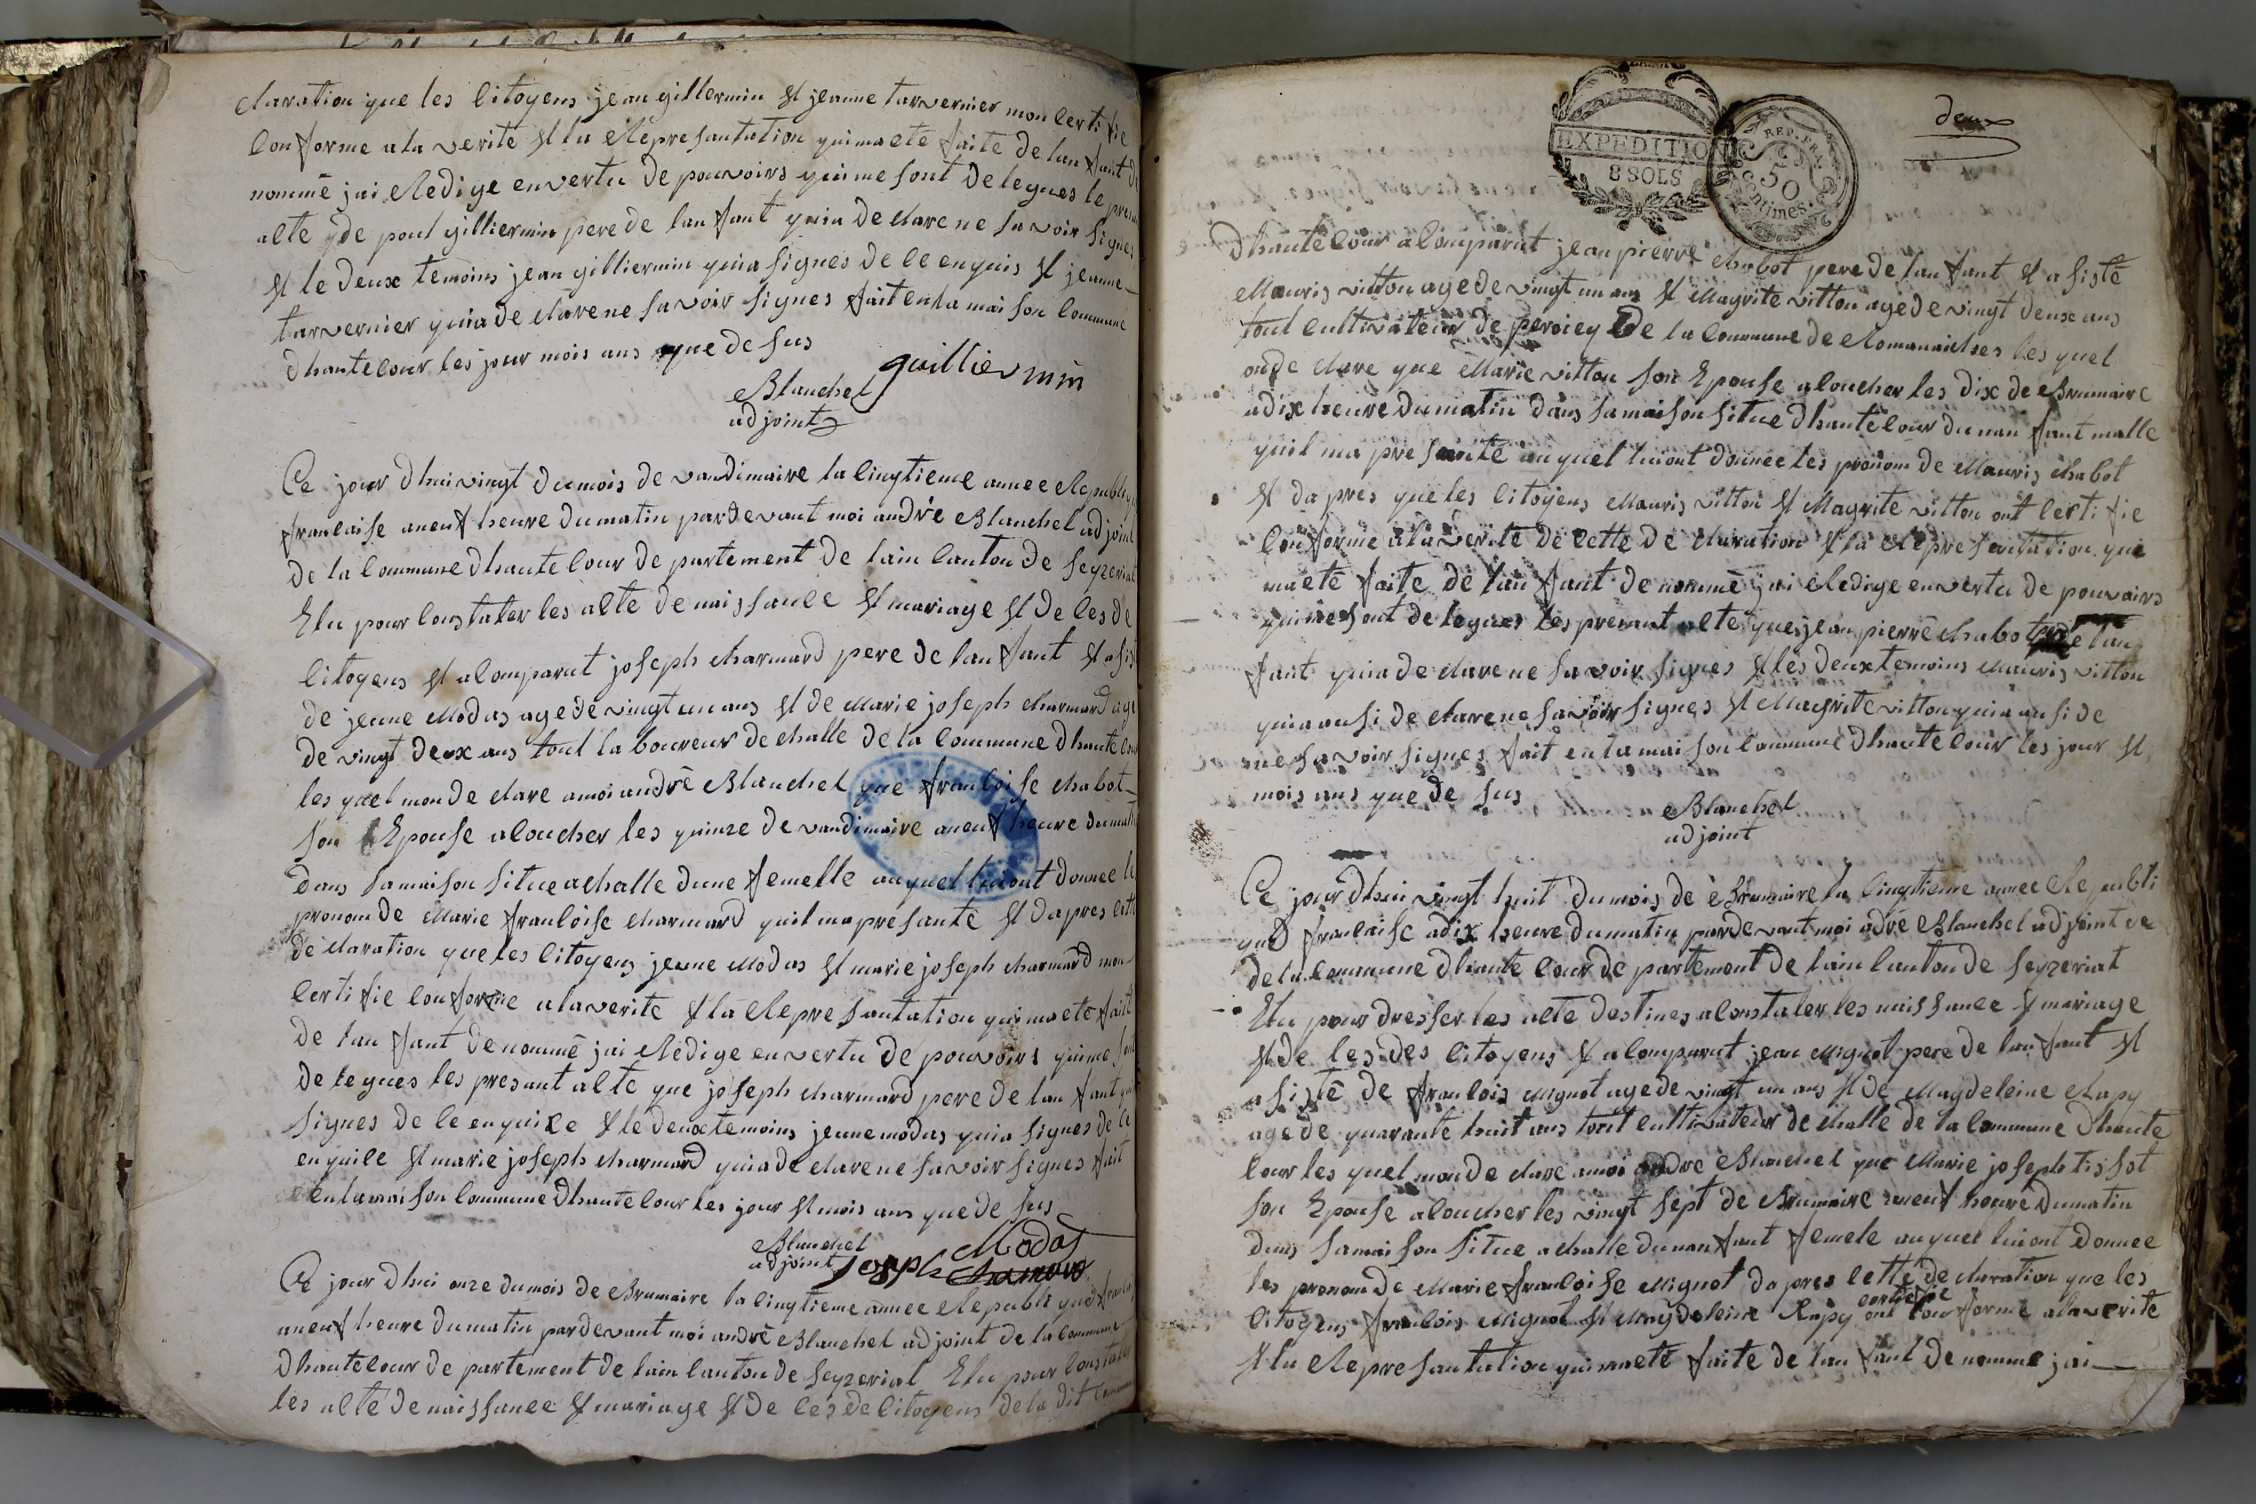 claration que les Citoyens jean gillermin et jeanne tarvernier mon Certifie
Conforme a la verite et la Represantation quima eté faite de lanfant de
nommé jai Redige envertu de pouvoirs quime sont delegues le presant
alte que poul gilliermin pere de lanfant quia declare ne savoir signes
et le deux temoins jean gilliermin quia signes de Ce enquis et jeanne
tarvernier quia declare ne savoir signes fait en la maison Commune
dhautecour les jour mois ans que desus
Blanchet guilliermin
adjoint
Ce jour dhui vingt du mois de vandimaire la Cinqtieme annee Republique
francaise a neuf heure du matin pardevant moi andré Blanchet adjoint
de la Commune dhautecour departement de lain Canton de seyzeriat
Elu pour Constater les alte de naissance et mariage et de ces de
Citoyens et a Comparut joseph charmard pere de lanfant et asisté
de jeune Modas age de vingt un ans et de Marie joseph charmard age
de vingt deux ans tout laboureur de challe de la Commune dhautecour
les quel mon declare a moi andré Blanchet que francoise chabot
son Epouse a Coucher les quinze de vandimaire a neuf heure du matin
dans sa maison situe a challe dune femelle au quel luiont donnee le
pronom de Marie francoise charmard quil ma presanté et dapres Cette
declaration que les Citoyens jeune Modas et marie joseph charmard mon
Certifie Conforme a la verite et la Represantation quima eté faite
de lanfant denommé jai Redige envertu de pouvoirs quime sont
delegues les presant alte que joseph charmard pere de lanfant quia
signes de Ce enquise et le deux temoins jeune modas quia signes de Ce
enquise et marie joseph charmard quia declare ne savoir signes fait
en la maison Commune dhautecour les jour et mois ans que de sus
Blanchet Modas
adjoint joseph charmard
Ce jour dhui onze du mois de Brumaire la Cinqtieme annee Republique francaise
a neuf heure du matin pardevant moi andré Blanchet adjoint de la Commune
dhautecour departement de lain Canton de seyzeriat Elu pour Constater
les alte de naissance et mariage et de ces de Citoyens de la dit Commune
EXPEDITION
8 SOLS
REP. FRA.
50
Centimes.
deux
dhautecour a Comparut jean pierre chabot pere de lanfant et asisté
Mauris vitton age de vingt un ans et Magrite vitton age de vingt deux ans
tout cultivateur de perciey de la Commune de Romanaiches les quel
on declare que Marie vitton son Epouse a Coucher les dix de Brumaire
a dix heure du matin dans sa maison situe dhautecour dunanfant malle
quil ma presanté au quel luiont donnee les pronom de Mauris chabot
et dapres que les Citoyens Mauris vitton et Magrite vitton ont Certifie
Conforme a la verite de Cette declaration et la Represantation qui
ma eté faite de lanfant denommé jai Redige envertu de pouvoirs
quime sont delegues les presant alte que jean pierre chabot de lan
fant quia declare ne savoir signes et les deux temoins Mauris vitton
quia ausi declare ne savoir signes et Magrite vitton quia ausi de
ne savoir signes fait en la maison Commune dhautecour les jour et
mois ans que de sus
Blanchet
adjoint
Ce jour dhui vingt huit du mois de Brumaire la Cinqtieme annee Republi
que francaise a dix heure du matin pardevant moi adré Blanchet adjoint de
de la Commune dhaute Cour departement de lain Canton de seyzeriat
Elu pour dresser les alte destines a Constater les naissance et mariage
et de Ces des Citoyens et a Comparut jean Mignot pere de lanfant et
asisté de francois Mignot age de vingt un ans et de Magdeleine Rapy
age de quarante huit ans tout cultivateur de challe de la Commune dhaute
Cour les quel mon declare a moi andre Blanchet que Marie joseph tissot
son Epouse a Coucher les vingt sept de Brumaire a neuf heure du matin
dans sa maison situe a challe dunanfant femele au quel luiont donnee
les pronom de Marie francoise Mignot dapres Cette declaration que les
Citoyens francois Mignot et Magdeleine Rapy ont certifie Conforme a la verite
et la Represantation quima eté faite de lanfant denomme jai